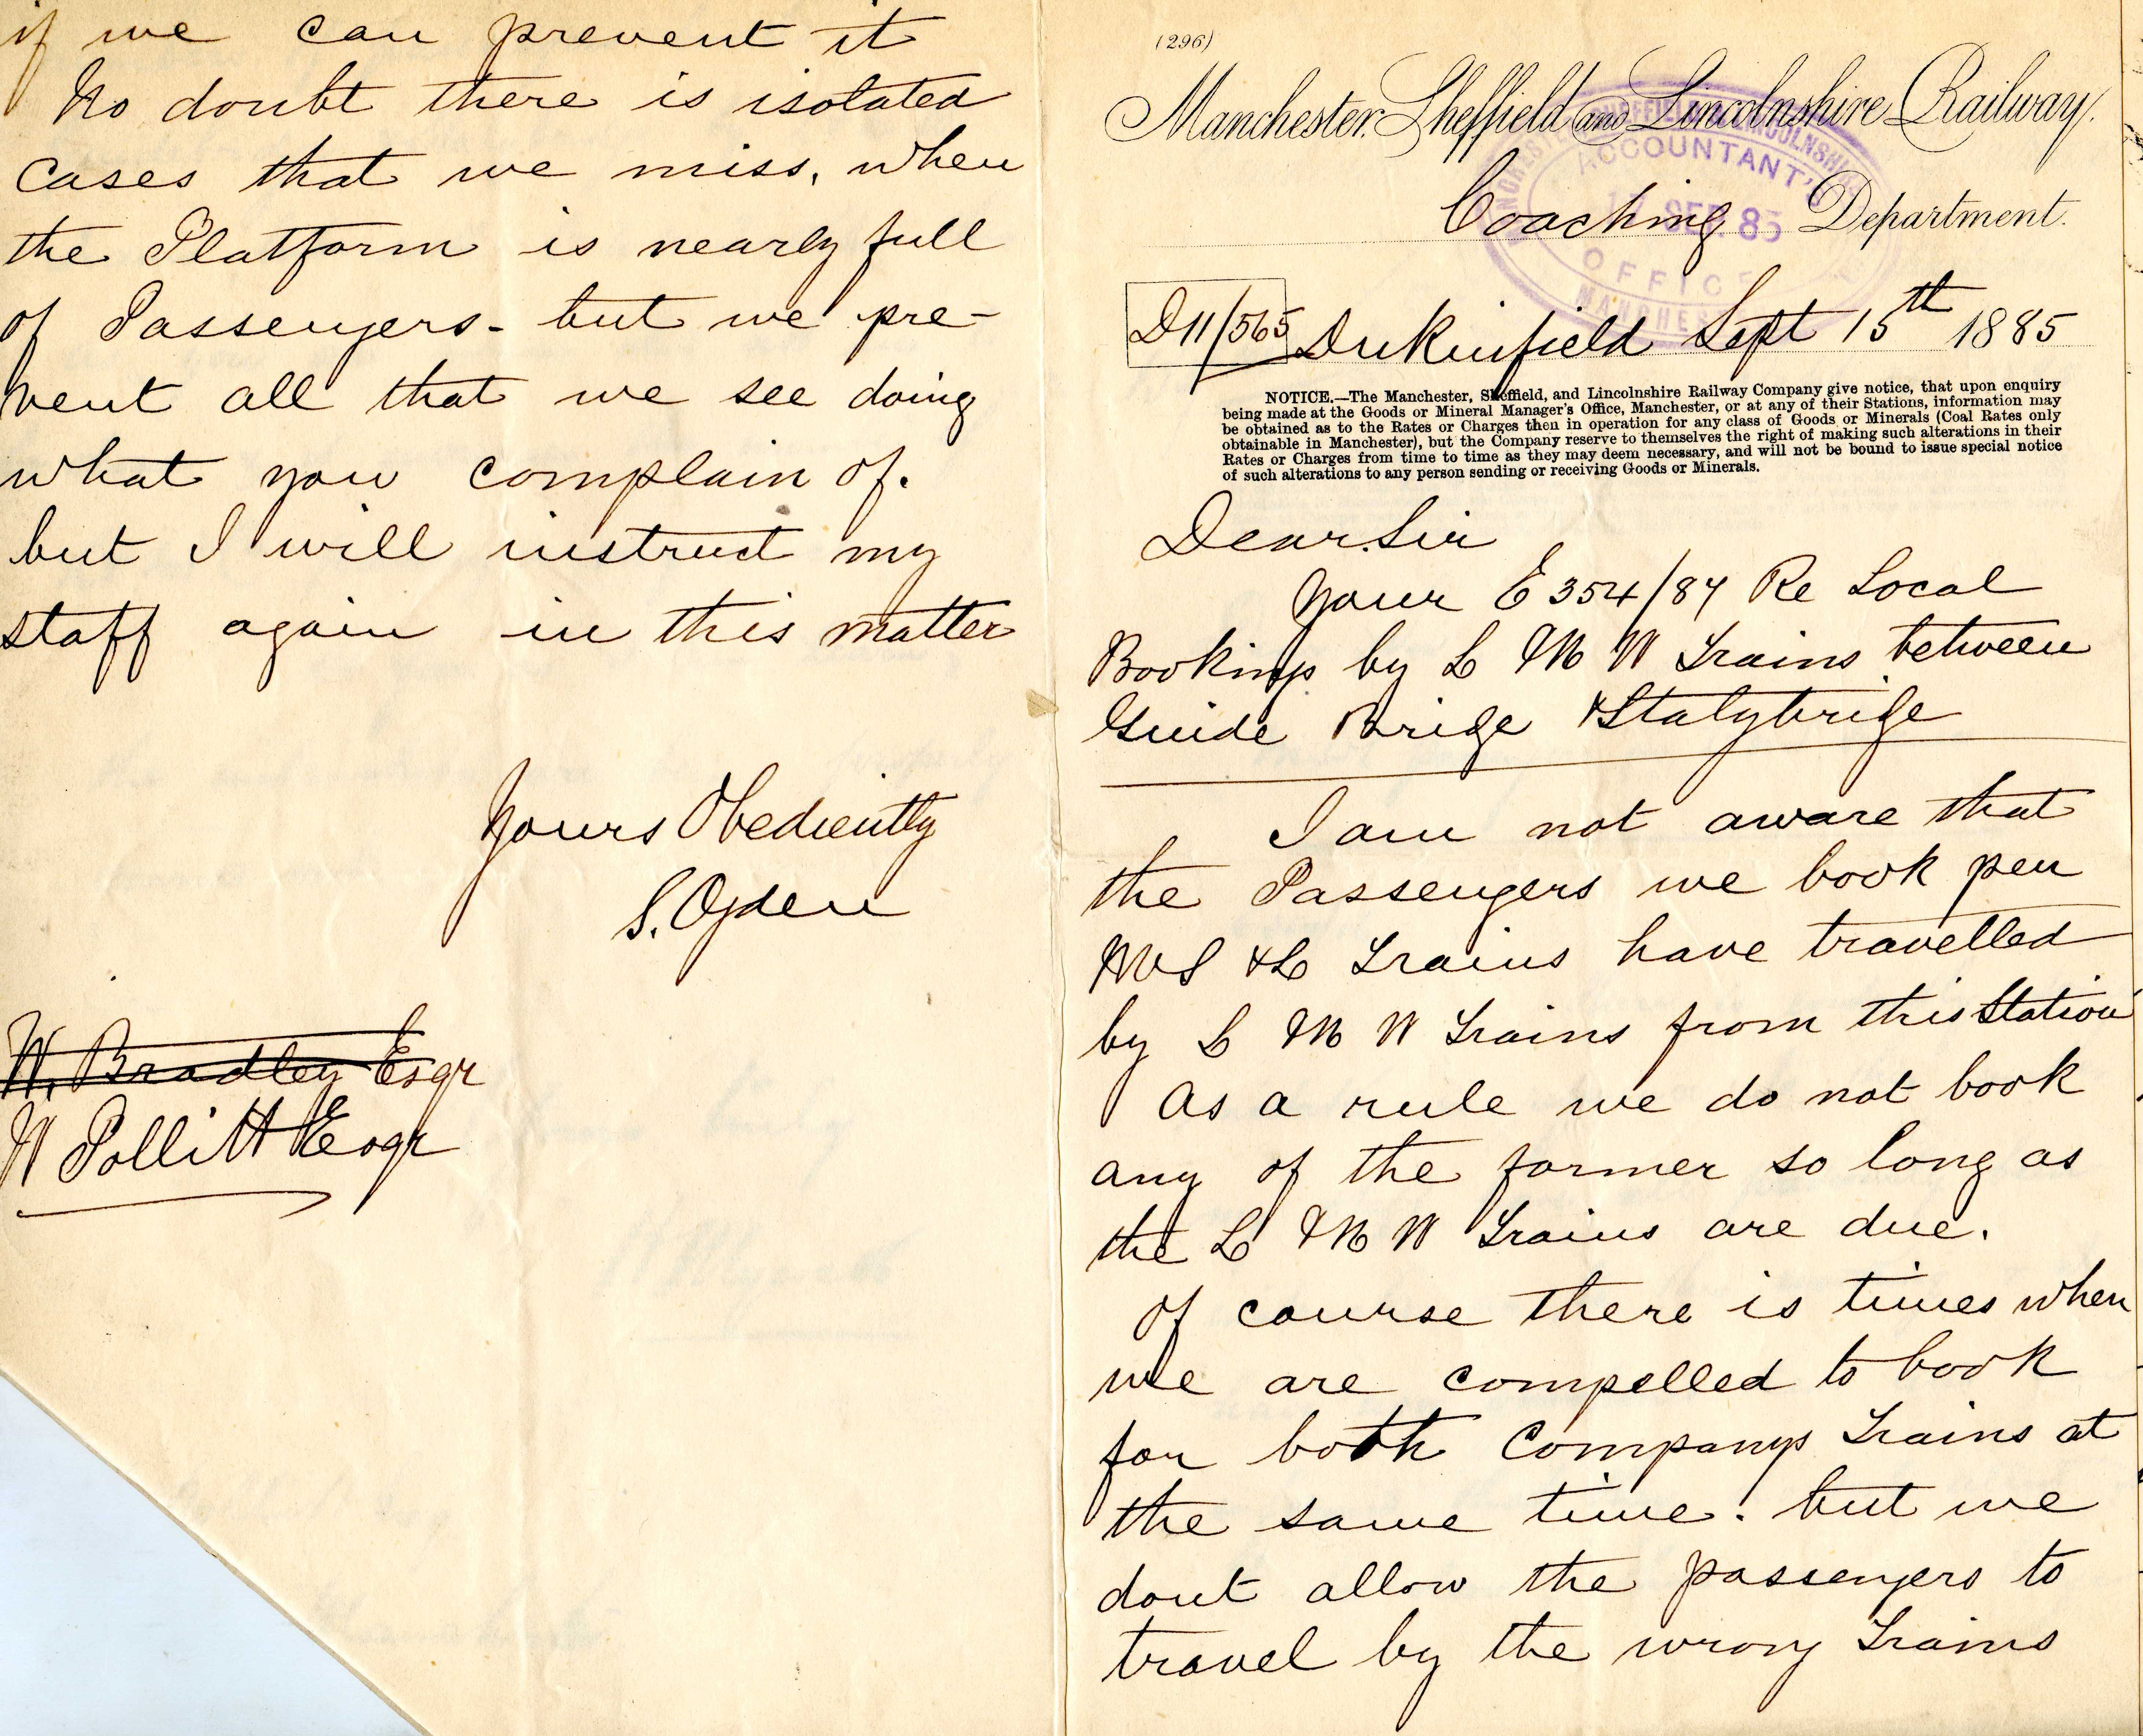 (296)
Manchester. Sheffield and Lincolnshire Railway.
MANCHESTER SHEFFIELD LINCOLNSHIRE
ACCOUNTANT'S
SEP. 85
OFFICE
MANCHESTER
Coaching Department.
D11/565 Dukinfield Sept 15th 1885
NOTICE.—The Manchester, Sheffield, and Lincolnshire Railway Company give notice, that upon enquiry
being made at the Goods or Mineral Manager's Office, Manchester, or at any of their Stations, information may
be obtained as to the Rates or Charges then in operation for any class of Goods or Minerals (Coal Rates only
obtainable in Manchester), but the Company reserve to themselves the right of making such alterations in their
Rates or Charges from time to time as they may deem necessary, and will not be bound to issue special notice
of such alterations to any person sending or receiving Goods or Minerals.
Dear Sir
Your E 354/84 Re Local
Bookings by L & N W Trains between
Guide Brige & Stalybrige
I am not aware that
the Passengers we book per
M S & L Trains have travelled
by L & N W Trains from this Station
As a rule we do not book
any of the former so long as
the L & N W Trains are due.
Of course there is times when
we are compelled to book
for both Companys Trains at
the same time. but we
dont allow the passengers to
travel by the wrong Trains
if we can prevent it
No doubt there is isolated
cases that we miss, when
the Platform is nearly full
of Passengers - but we pre-
vent all that we see doing
what you complain of.
but I will instruct my
staff again in this matter
Yours Obediently
S. Ogden
W. Bradley Esqr
W Pollitt Esqr